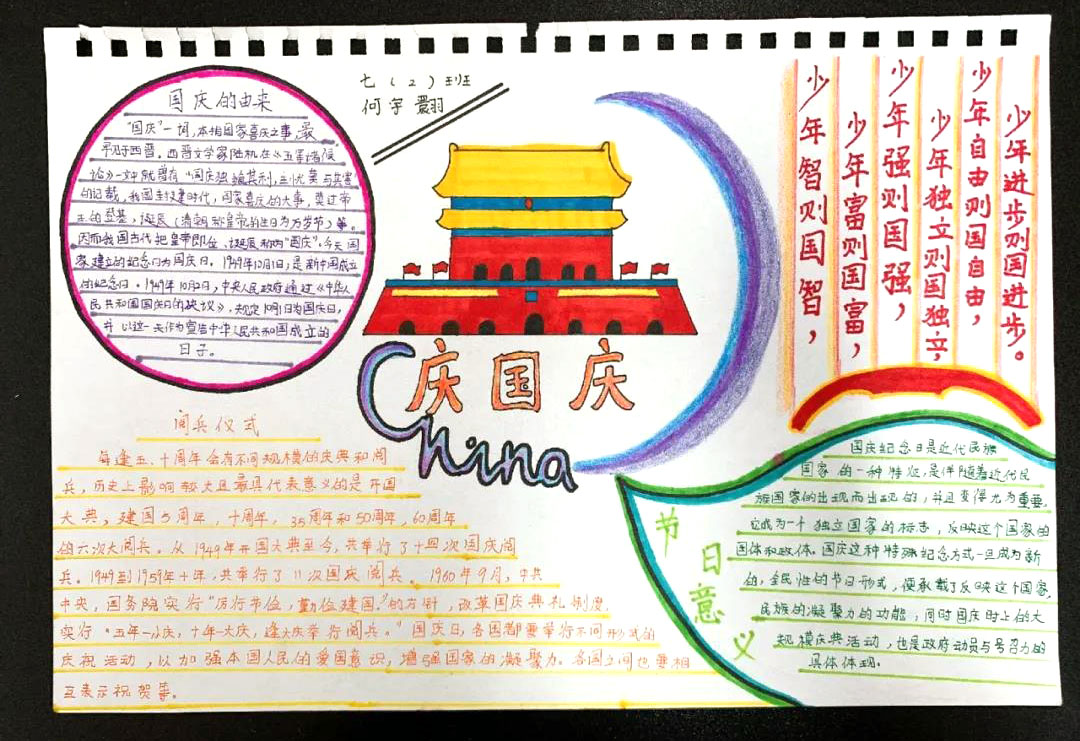 七（2）班
何宇翾
国庆的由来
"国庆"一词，本指国家喜庆之事，最
早见于西晋。西晋文学家陆机在《五等诸侯
论》一文中就曾有"国庆独飨其利，主忧莫与其害"
的记载，我国封建时代，国家喜庆的大事，莫过帝
王的登基，诞辰（清朝称皇帝的生日为万岁节）等。
因而我国古代把皇帝即位、诞辰称为"国庆"。今天国
家建立的纪念日为国庆日。1949年10月1日，是新中国成立
的纪念日。1949年10月2日，中央人民政府通过《中华人
民共和国国庆日的决议》，规定10月1日为国庆日，
并以这一天作为宣告中华人民共和国成立的
日子。
庆国庆
China
少年智则国智，
少年富则国富，
少年强则国强，
少年独立则国独立，
少年自由则国自由，
少年进步则国进步。
阅兵仪式
每逢五、十周年会有不同规模的庆典和阅
兵，历史上影响较大且最具代表意义的是开国
大典，建国5周年，十周年，35周年和50周年，60周年
的六次大阅兵。从1949年开国大典至今，共举行了十四次国庆阅
兵。1949到1959年十年，共举行了11次国庆阅兵、1960年9月，中共
中央，国务院实行"厉行节俭，勤俭建国。"的方针，改革国庆典礼制度，
实行"五年一小庆，十年一大庆，逢大庆举行阅兵。"国庆日，各国都要举行不同形式的
庆祝活动，以加强本国人民的爱国意识，增强国家的凝聚力。各国之间也要相
互表示祝贺等。
节日意义
国庆纪念日是近代民族
国家的一种特征，是伴随着近代民
族国家的出现而出现的，并且变得尤为重要，
它成为一个独立国家的标志，反映这个国家的
国体和政体。国庆这种特殊纪念方式一旦成为新
的，全民性的节日形式，便承载了反映这个国家，
民族的凝聚力的功能，同时国庆时上的大
规模庆典活动，也是政府动员与号召力的
具体体现。